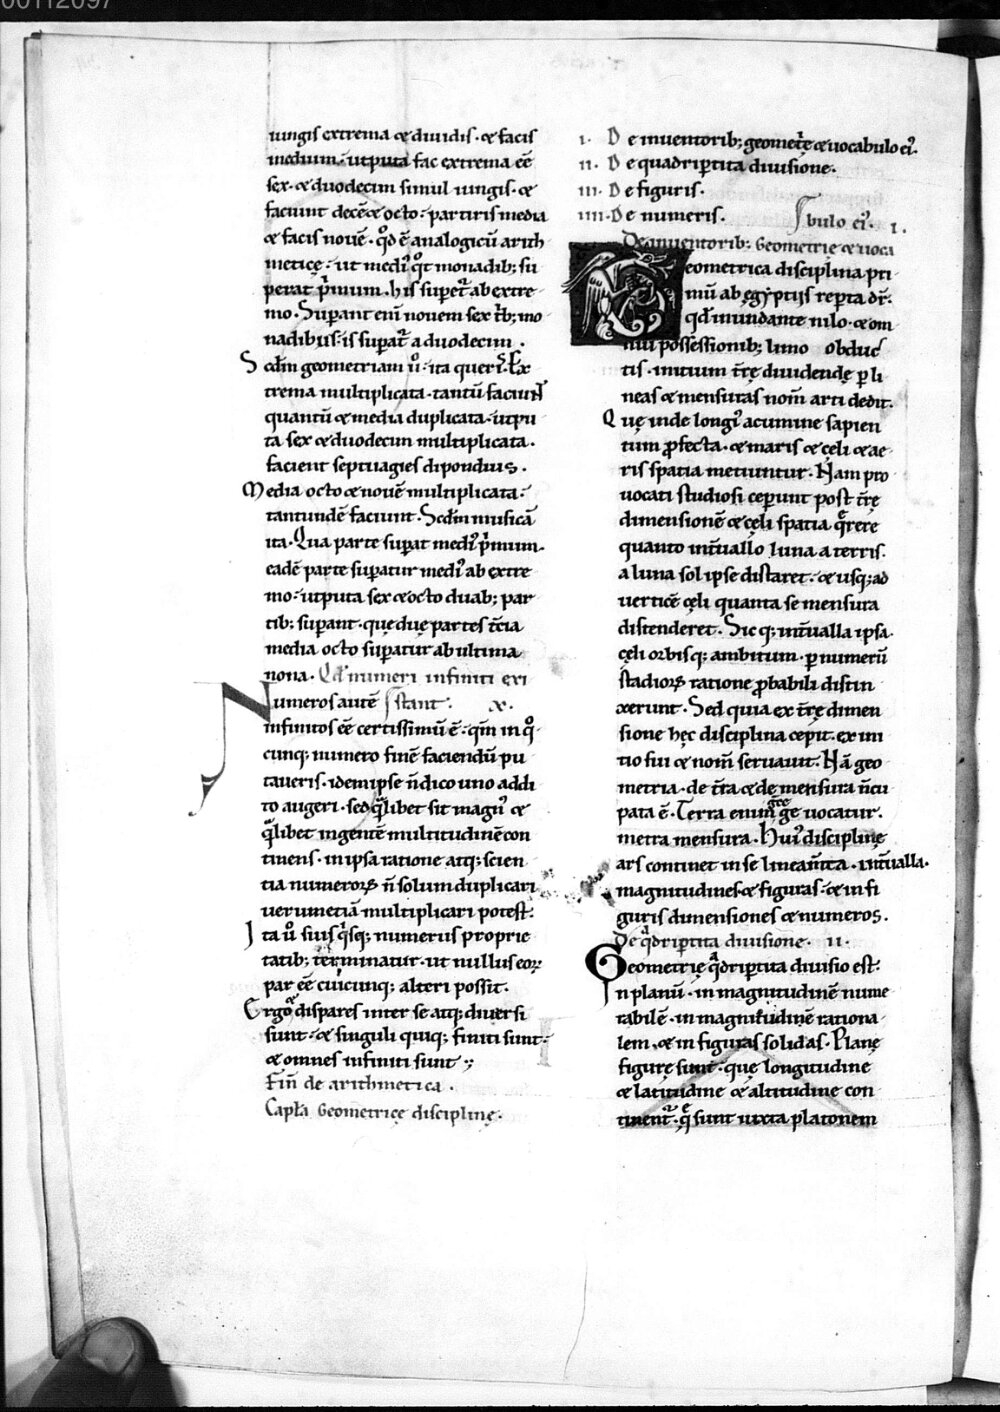 00112097
iungis extrema & diuidis. & facis
medium. utputa fac extrema eē
sex. & duodecim simul iungis. &
faciunt decē & octo. partiris media
& facis nouē. qd̄ ē analogicū arith
meticę. ut medi' qͥt monadib; su
perat p̄mum. his supet̄ ab extre
mo. Supant eni nouem sex t̄b; mo
nadibus. is supat̄ a duodecim.
Scdm̄ geometriam ū. ita queri.̄ Ex
trema multiplicata. tantū faciunt
quantū & media duplicata. utpu
ta sex & duodecim multiplicata.
facient septuagies dipondius.
Media octo & nouē multiplicata.
tantundē faciunt. Scdm̄ musicā
ita. Qua parte supat medi' p̄mum.
eadē parte supatur medi' ab extre
mo. utputa sex & octo duab; par
tib; supant. que duę partes t̄cia
media octo supatur ab ultima
nona. Qd̄ numeri infiniti exi
Numeros autē stant. x.
infinitos eē certissimū ē. qm̄ in qͦ
cunq; numero finē faciendū pu
taueris. idem ipse n̄ dico uno addi
to augeri. sed qͣlibet sit magn' &
qͣlibet ingentē multitudinē con
tinens. in ipsa ratione atq; scien
tia numeroꝝ n̄ solum duplicari
uerum etiā multiplicari potest.
Ita ū suis qͥsq; numerus proprie
tatib; terminatur. ut nullus eoꝝ
par eē cuicunq; alteri possit.
Ergo & dispares inter se atq; diuersi
sunt. & singuli quiq; finiti sunt.
& omnes infiniti sunt.
Fin̄ de arithmetica.
Capl̄a Geometricę disciplinę.
i. De inuentorib; geometᵉ & uocabulo ei'.
ii. De quadriptita diuisione.
iii. De figuris.
iiii. De numeris. bulo ei'. i.
De inuentorib; Geometrie & uoca
Geometrica disciplina pri
mū ab egyptiis repta dr̄.
qd̄ inundante nilo. & om
niū possessionib; limo obduc
tis. initium t̄rę diuidendę ꝑ li
neas & mensuras nom̄ arti dedit.
Quę inde longi' acumine sapien
tum ꝓfecta. & maris & cęli & ae
ris spatia metiuntur. Nam pro
uocati studiosi ceperunt post t̄rę
dimensionē & cęli spatia qͣrere
quanto int̄uallo luna a terris.
a luna sol ipse distaret. & usq; ad
uerticē cęli quanta se mensura
distenderet. Sic q; int̄ualla ipsa.
cęli orbisq; ambitum. ꝑ numerū
stadioꝝ ratione ꝓbabili distin
xerunt. Sed quia ex t̄rę dimen
sione hęc disciplina cepit. ex ini
tio sui & nom̄ seruauit. Nā geo
metria. de t̄ra & de mensura n̄cu
pata ē. Terra enim grᵉce ge uocatur.
metra mensura. Hui' disciplinę
ars continet in se lineam̄ta. int̄ualla.
magnitudines & figuras. & in fi
guris dimensiones & numeros.
De qͣdriptita diuisione. ii.
Geometrię qͣdriptita diuisio est.
In planū. in magnitudinē nume
rabilē. in magnitudinē rationa
lem. & in figuras solidas. Planę
figurę sunt. que longitudine
& latitudine & altitudine con
tinent̄. qͤ sunt iuxta platonem